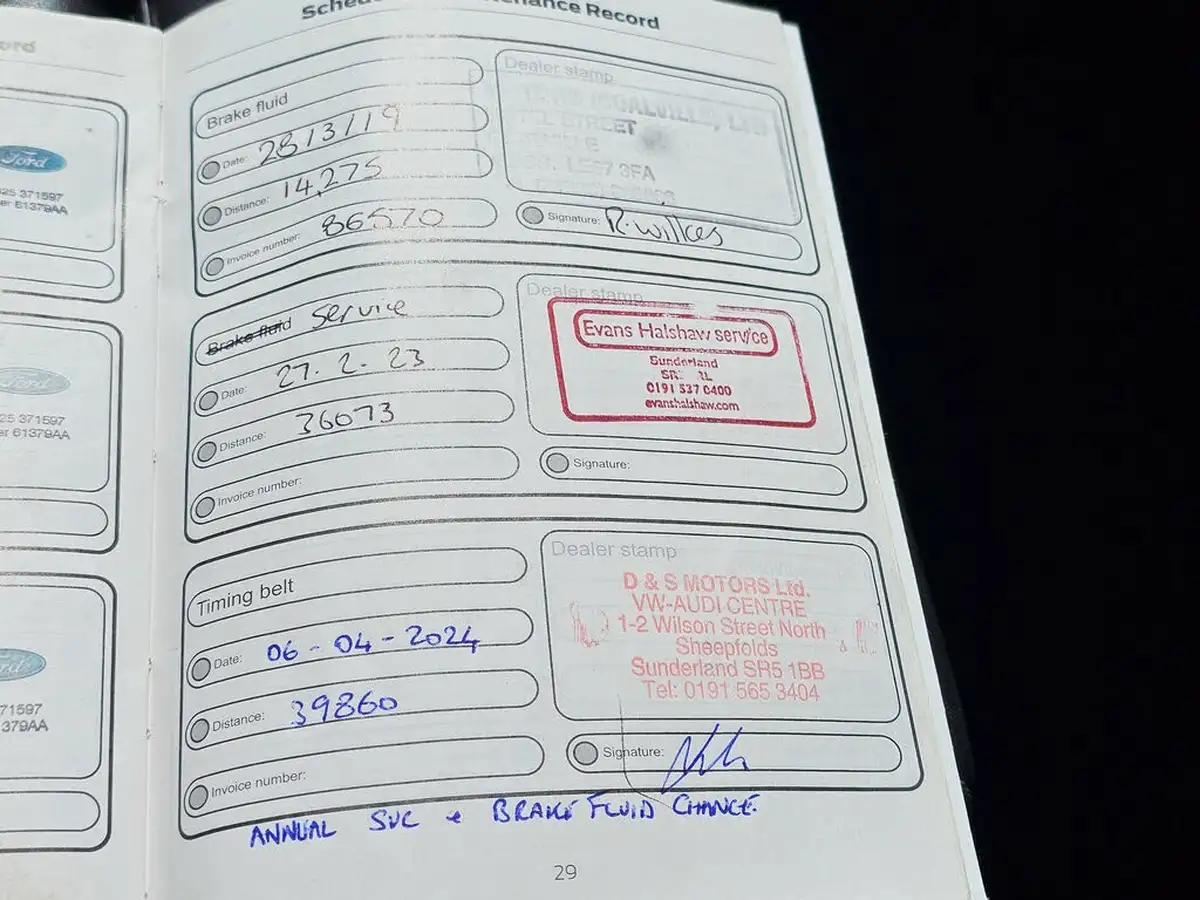 ord
Ford
25 371597
er 61379AA
Ford
25 371597
er 61379AA
71597
379AA
Maintenance Record
Brake fluid
Date: 28/3/19
Distance: 14,275
Invoice number: 86570
Dealer stamp
STREET
LE67 3FA
Signature: R.Wilkes
Brake fluid Service
Date: 27.2.23
Distance: 36073
Invoice number:
Dealer stamp
Evans Halshaw service
Sunderland
0191 537 0400
evanshalshaw.com
Signature:
Timing belt
Date: 06-04-2024
Distance: 39860
Invoice number:
Dealer stamp
D & S MOTORS Ltd.
VW-AUDI CENTRE
1-2 Wilson Street North
Sheepfolds
Sunderland SR5 1BB
Tel: 0191 565 3404
Signature:
ANNUAL SVC & BRAKE FLUID CHANGE
29